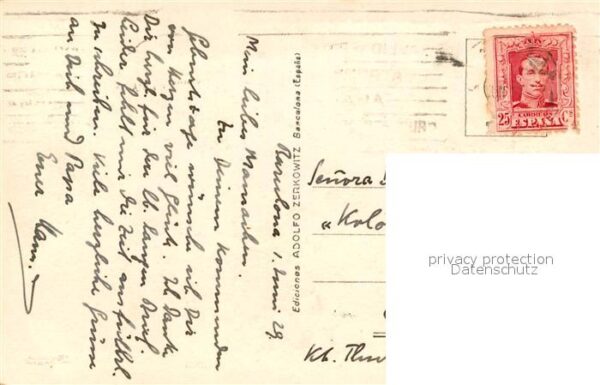 Barcelona 1. Juni 29.
Mein liebes Mamachen!
Zu Deinem kommenden
Geburtstage wünsche ich Dir
von Herzen viel Glück. Ich danke
Dir herzl. für den lb. langen Brief.
Leider fehlt mir die Zeit ausführl.
zu schreiben. Viele herzliche Grüsse
an Dich und Papa
Euer Hans.
Ediciones ADOLFO ZERKOWITZ Barcelona (España)
25 Cs
ESPAÑA
Señora
"Kolo
Kb.
privacy protection
Datenschutz